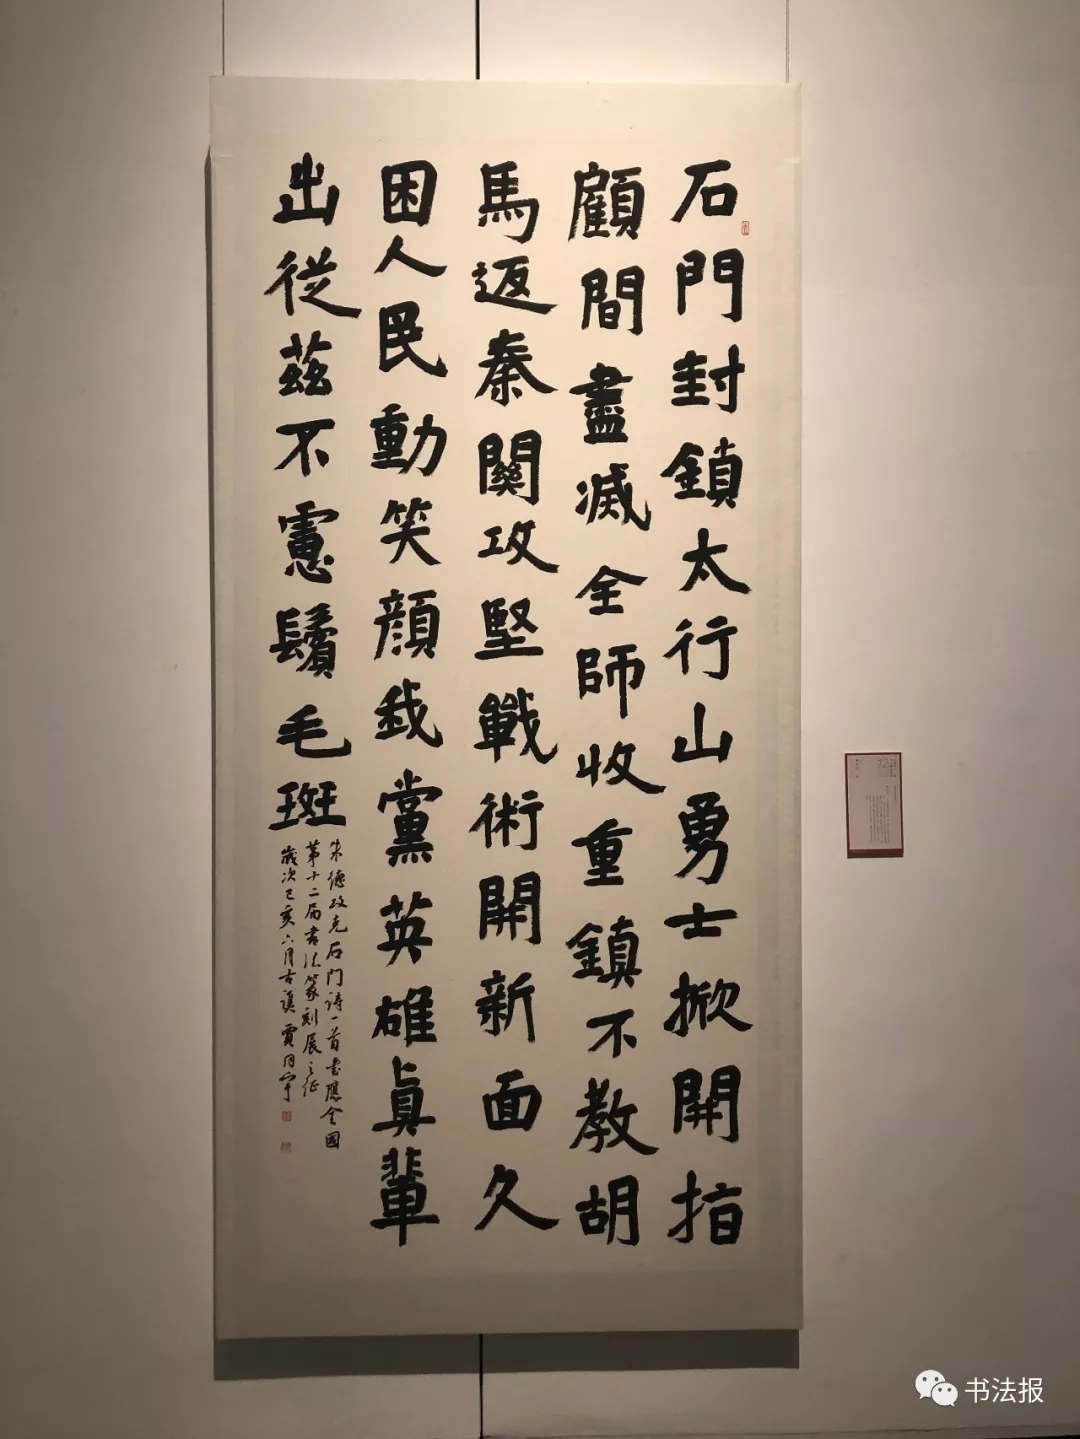 石門封鎖太行山勇士掀開指
顧間盡滅全師收重鎮不教胡
馬返秦關攻堅戰術開新面久
困人民動笑顏我黨英雄真輩
出從茲不慮鬢毛斑
朱德攻克石门诗一首书应全国
第十二届书法篆刻展之征
岁次己亥六月古滇贾同宇
书法报